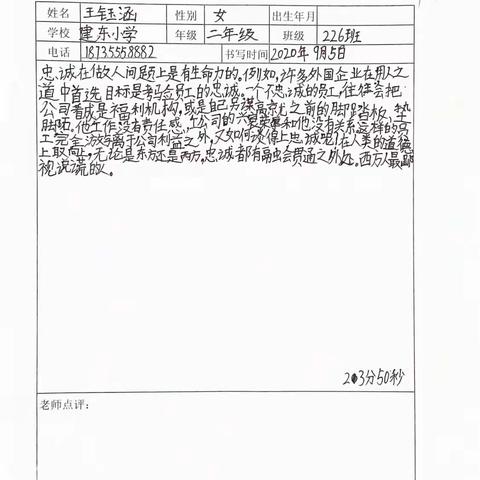 姓名 王钰涵 性别 女 出生年月
学校 建东小学 年级 二年级 班级 226班
电话 18735558882 书写时间 2020年9月5日
忠诚在做人问题上是有生命力的。例如,许多外国企业在用人之
道中首选目标是考应员工的忠诚。一个不忠诚的员工,往往会把
公司看成是福利机构,或是自己另谋高就之前的脚踏板、垫
脚陌。他工作没有责任感,公司的兴衰荣辱和他没有关系这样的员
工完全游离于公司利益之外,又如何谈得上忠诚呢在人类的道德
上取向,无论是东方还是西方,忠诚都有融会贯通之外处。西方人最鄙
视说谎的人。
3分50秒
老师点评: